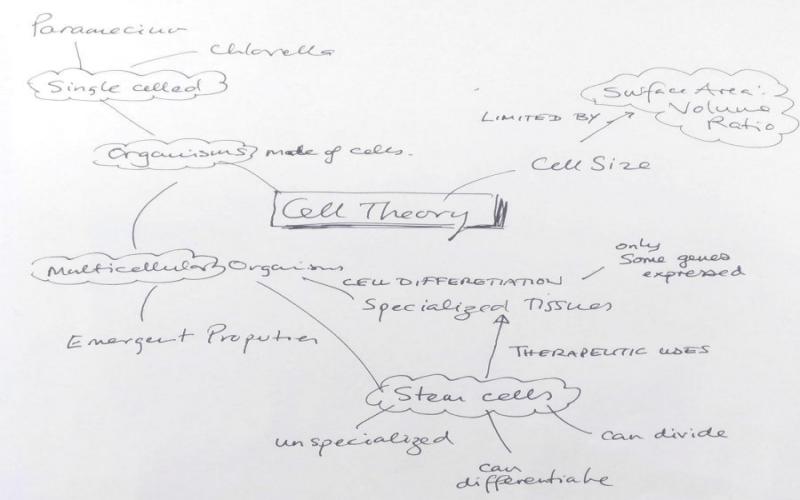 Paramecium
Chlorella
Single celled
Surface Area:
Volume
Ratio
LIMITED BY
Organisms made of cells.
Cell Size
Cell Theory
Multicellular Organism
only
Some genes
expressed
CELL DIFFERETIATION
Specialized Tissues
Emergent Properties
THERAPEUTIC USES
Stem cells
unspecialized
can divide
can
differentiate